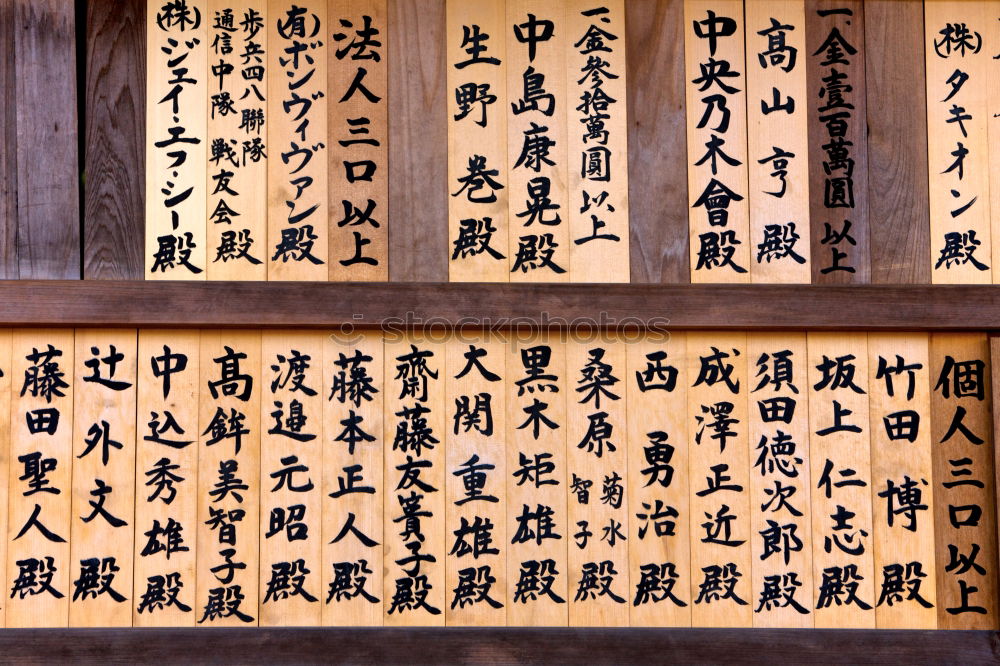 (株)タキオン殿
一金壹百萬圓以上
高山亨殿
中央乃木會殿
一金參拾萬圓以上
中島康晃殿
生野巻殿
法人三口以上
(有)ボンヴィヴァン殿
歩兵四八聯隊
通信中隊 戦友会殿
(株)ジェイ・エフ・シー殿
個人三口以上
竹田博殿
坂上仁志殿
須田徳次郎殿
成澤正近殿
西勇治殿
桑原菊水
智子殿
黒木矩雄殿
大関重雄殿
齋藤友簀子殿
藤本正人殿
渡邉元昭殿
高鉾美智子殿
中込秀雄殿
辻外文殿
藤田聖人殿
stockphotos